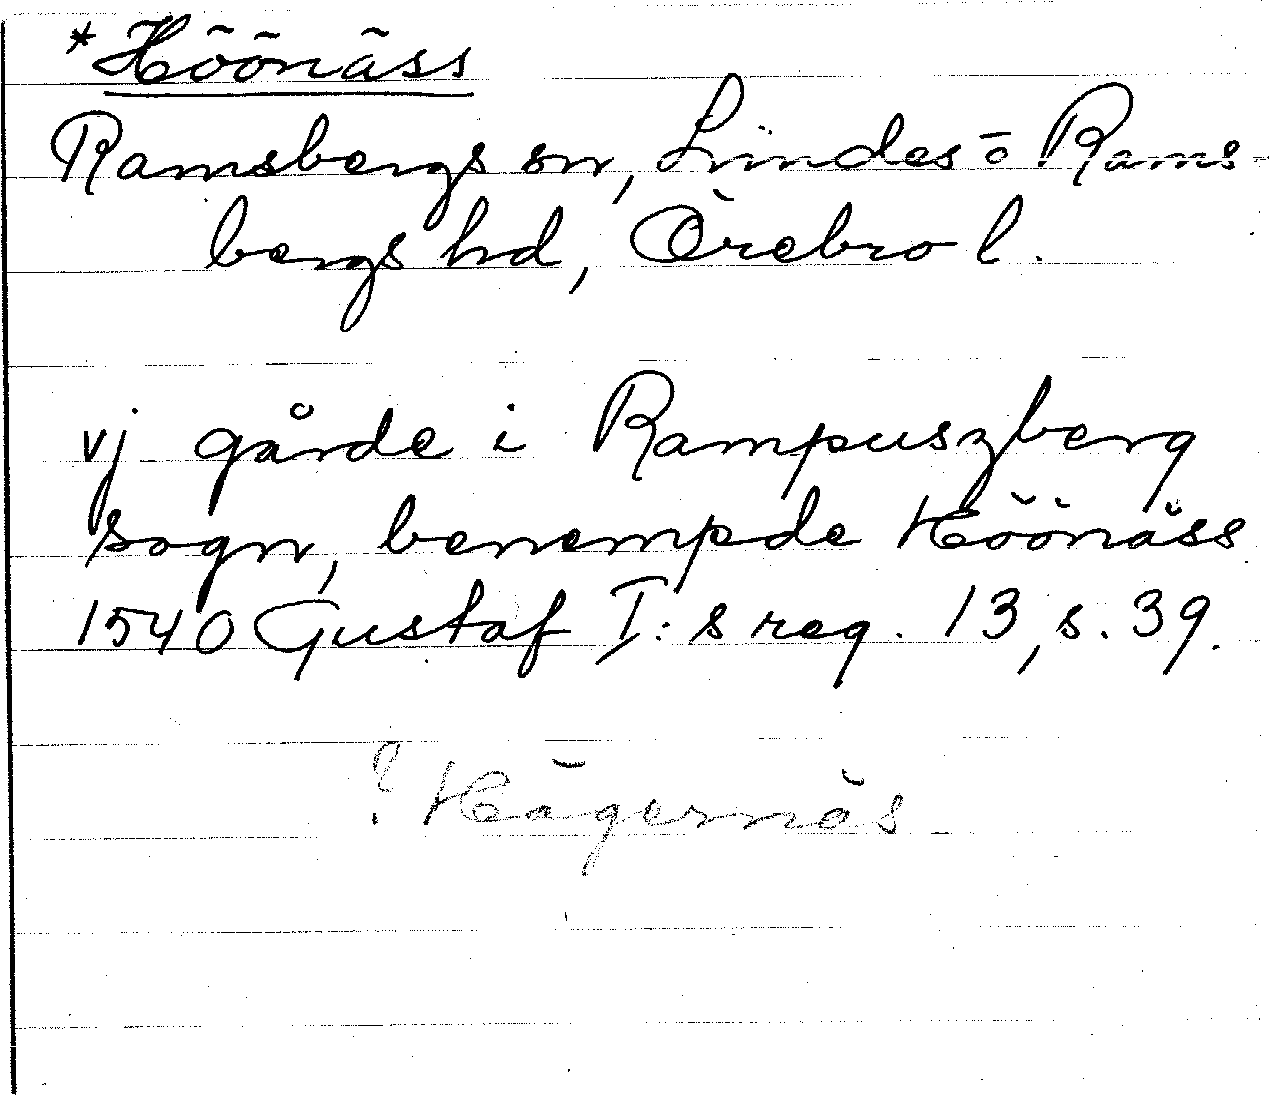 *Höönäss
Ramsbergs sn, Lindes o Rams-
bergs hd, Örebro l.
vj gårde i Rampuszberg
sogn, benempde Höönäss
1540 Gustaf I:s reg. 13, s. 39.
? Hägernäs